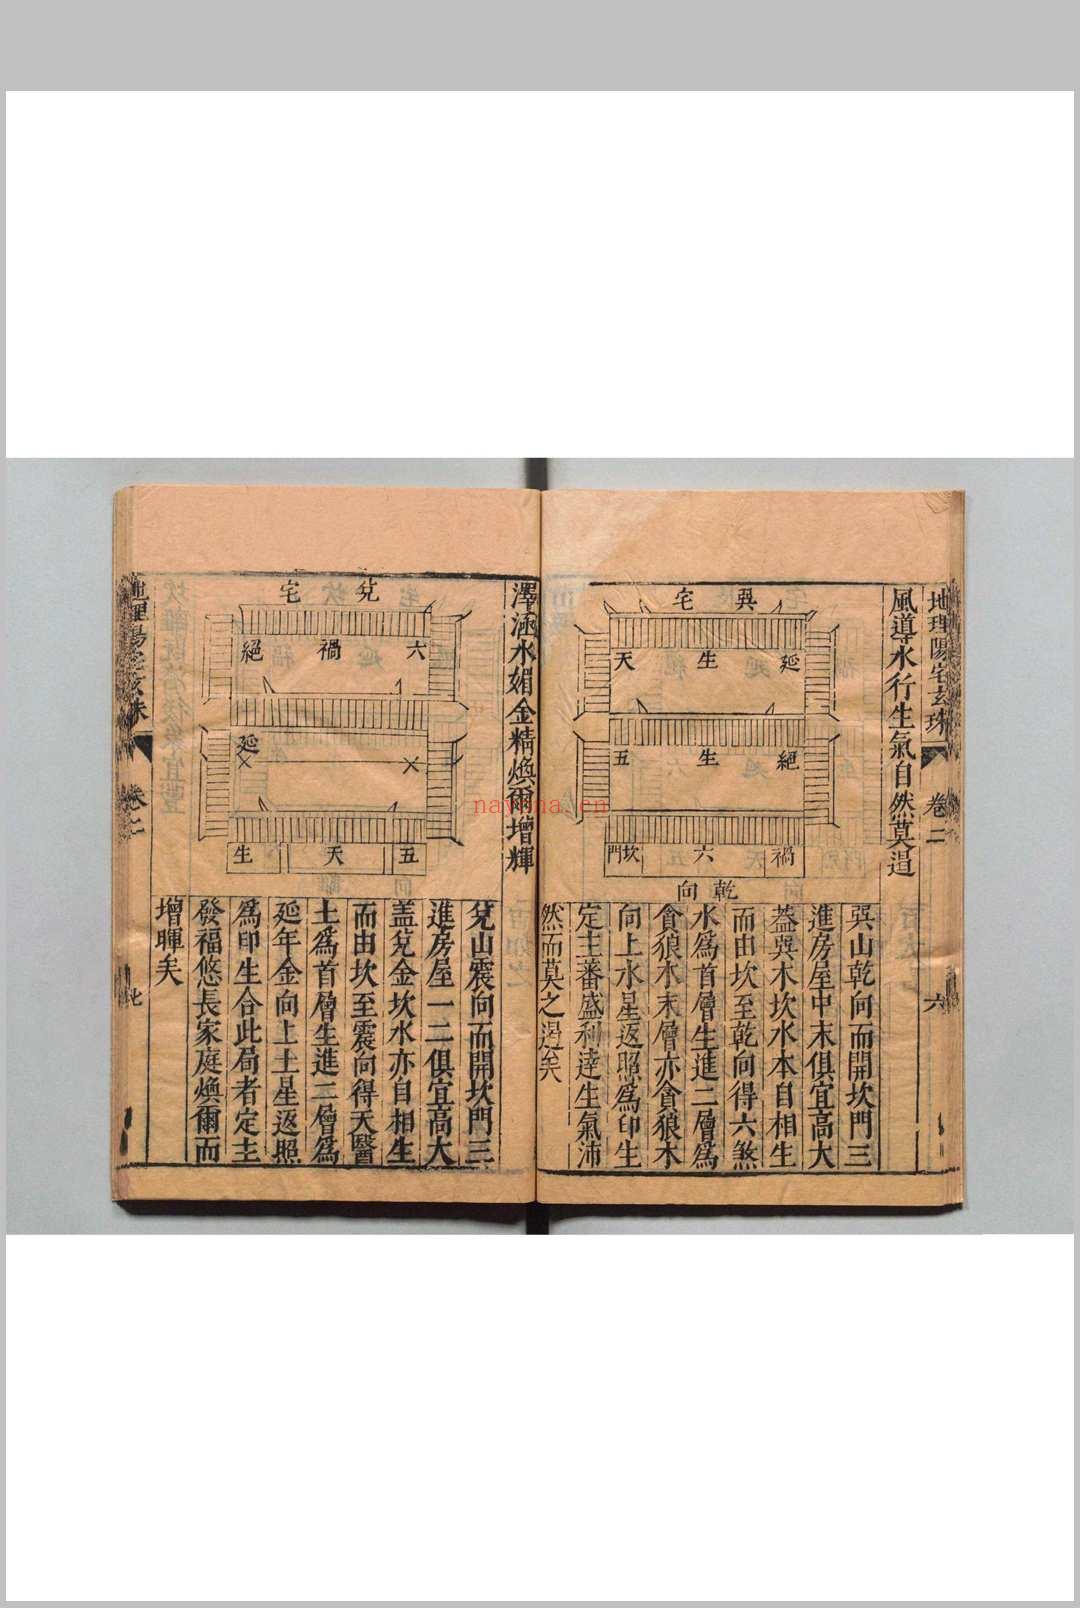 地理陽宅玄珠 卷二 六
風導水行生氣自然莫遏
巽宅
延生天
絕生五
禍六坎門
乾向
巽山乾向而開坎門三
進房屋中末俱宜高大
蓋巽木坎水本自相生
而由坎至乾向得六煞
水爲首層生進二層爲
貪狼木末層亦貪狼木
向上水星返照爲印生
定主蕃盛利達生氣沛
然而莫之遏矣
澤涵水媚金精煥爾增輝
兌宅
六禍絕
延
五天生
兌山震向而開坎門三
進房屋一二俱宜高大
盖兌金坎水亦自相生
而由坎至震向得天醫
土爲首層生進二層爲
延年金向上土星返照
爲印生合此局者定主
發福悠長家庭煥爾而
增暉矣
卷二 七
nayona.cn